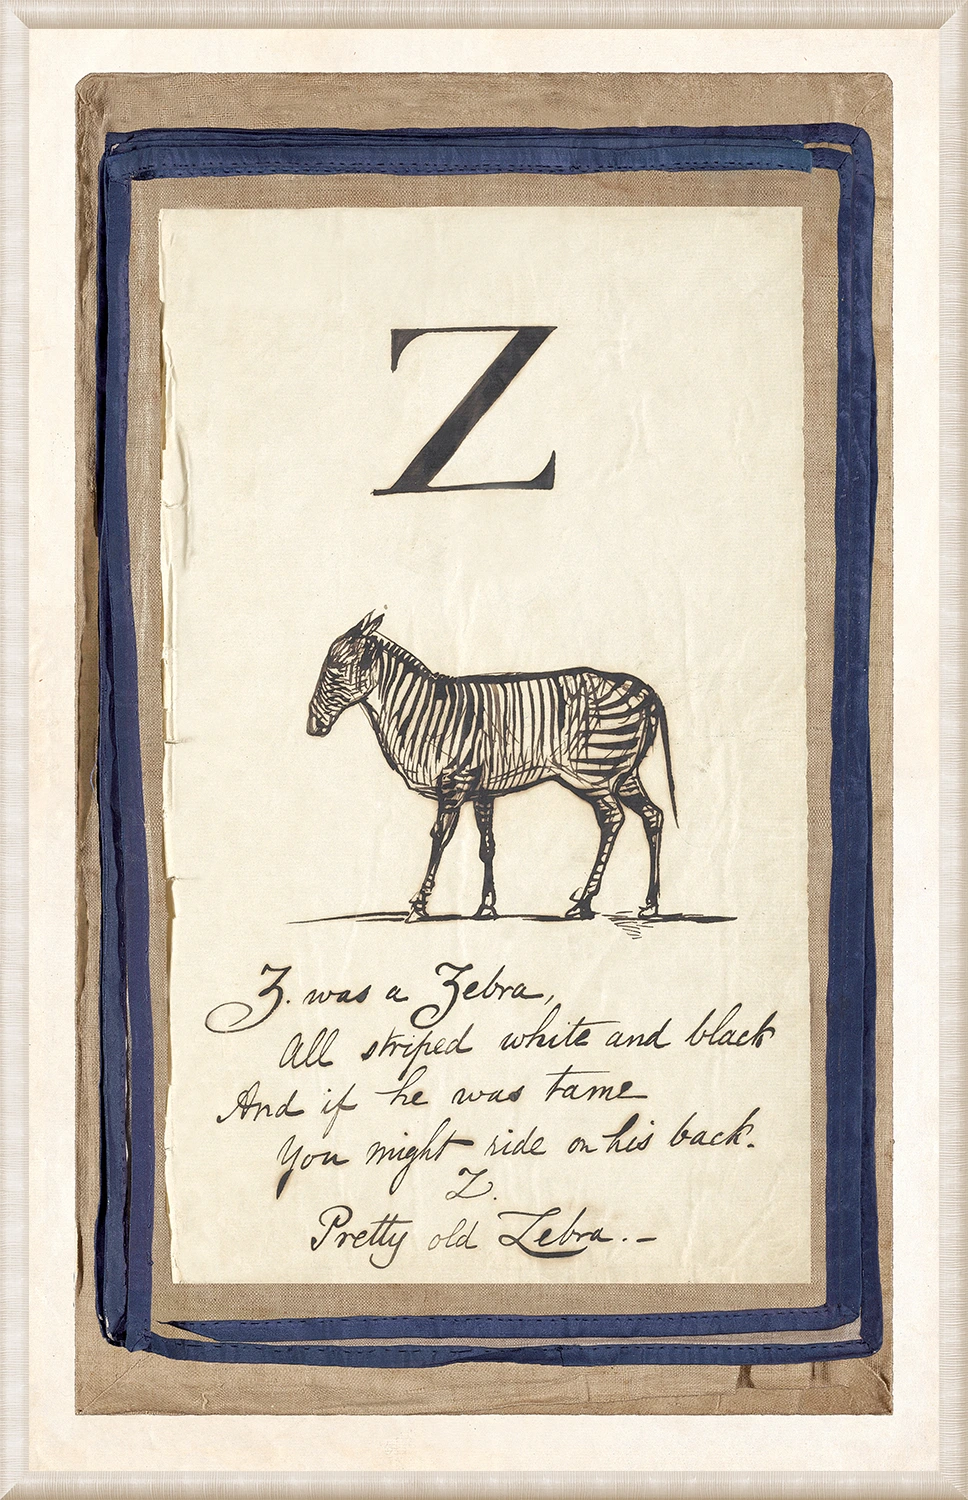 Z
Z. was a Zebra,
All striped white and black
And if he was tame
You might ride on his back.
Z.
Pretty old Zebra. –